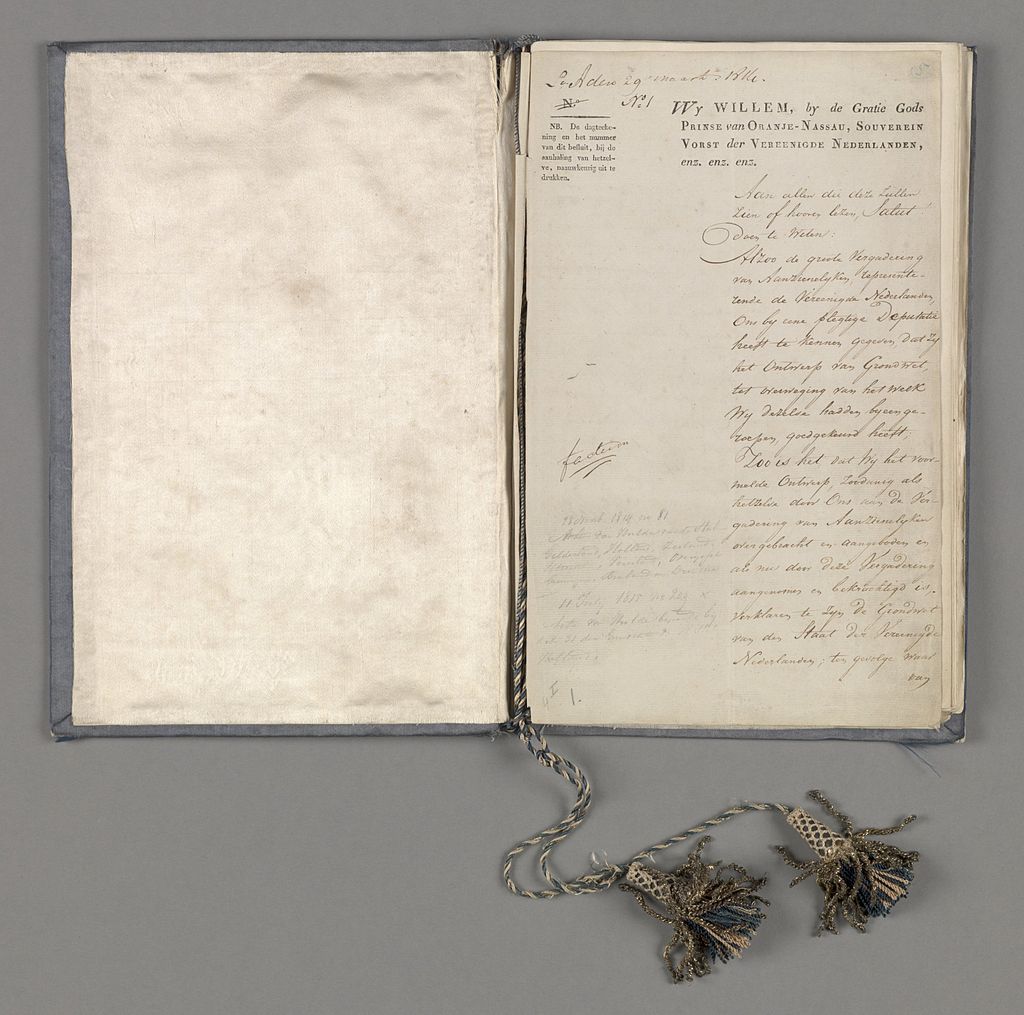 29 maart 1814.
N.o
No 1
NB. De dagteeke-
ning en het nummer
van dit besluit, bij de
aanhaling van hetzel-
ve, naauwkeurig uit te
drukken.
WY WILLEM, by de Gratie Gods
PRINSE van ORANJE-NASSAU, SOUVEREIN
VORST der VEREENIGDE NEDERLANDEN,
enz. enz. enz.
Aan allen die deze zullen
zien of hooren lezen, Salut!
doen te Weten:
Alzoo de groote Vergadering
van Aanzienelyken, represente-
rende de Vereenigde Nederlanden,
Ons by eene plegtige Deputatie
heeft te kennen gegeven, dat Zy
het Ontwerp van Grondwet,
tot overweging van het welk
Wy dezelve hadden byeenge-
roepen, goedgekeurd heeft;
Zoo is het, dat Wy het voor-
melde Ontwerp, zoodanig als
hetzelve door Ons aan de Ver-
gadering van Aanzienelyken
overgebracht en aangeboden en
als nu door deze Vergadering
aangenomen en bekrachtigd is,
verklaren te zyn de Grondwet
van den Staat der Vereenigde
Nederlanden; ten gevolge waar
van
1814 no 81
Gelderland, Holland, Zeeland,
11 July 1815 no
1.